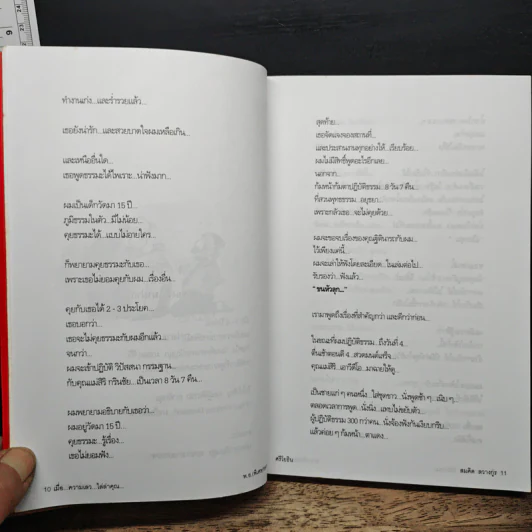 ทำงานเก่ง...และร่ำรวยแล้ว...
เธอยังน่ารัก...และสวยบาดใจผมเหลือเกิน...
และเหนืออื่นใด...
เธอพูดธรรมะได้ไพเราะ...น่าฟังมาก...
ผมเป็นเด็กวัดมา 15 ปี...
ภูมิธรรมในตัว...มีไม่น้อย...
คุยธรรมะได้...แบบไม่อายใคร...
ก็พยายามคุยธรรมะกับเธอ...
เพราะเธอไม่ยอมคุยกับผม...เรื่องอื่น...
คุยกับเธอได้ 2 - 3 ประโยค...
เธอบอกว่า...
เธอจะไม่คุยธรรมะกับผมอีกแล้ว...
จนกว่า...
ผมจะเข้าปฏิบัติ วิปัสสนา กรรมฐาน...
กับคุณแม่สิริ กรินชัย...เป็นเวลา 8 วัน 7 คืน...
ผมพยายามอธิบายกับเธอว่า...
ผมอยู่วัดมา 15 ปี...
คุยธรรมะ...รู้เรื่อง...
เธอไม่ยอมฟัง...
10 เมื่อ...ความเลว...ไล่ล่าคุณ...
สุดท้าย...
เธอจัดแจงจองสถานที่...
และประสานงานทุกอย่างให้...เรียบร้อย...
ผมไม่มีสิทธิ์พูดอะไรอีกเลย...
นอกจาก...
ก้มหน้าก้มตาปฏิบัติธรรม...8 วัน 7 คืน...
ที่สวนพุทธธรรม...อยุธยา...
เพราะกลัวเธอ...จะไม่คุยด้วย...
ผมจะขอจบเรื่องของคุณฐิตินารถกับผม...
ไว้เพียงแค่นี้...
ผมจะเล่าให้ฟังโดยละเอียด...ในเล่มต่อไป...
รับรองว่า...ฟังแล้ว...
" ขนหัวลุก..."
เรามาพูดถึงเรื่องที่สำคัญกว่า และดีกว่าก่อน...
ในขณะที่ผมปฏิบัติธรรม...ถึงวันที่ 4...
ตื่นเช้าตอนตี 4...สวดมนต์เสร็จ...
คุณแม่สิริ...เอาวีดีโอ...มาฉายให้ดู...
เป็นชายแก่ ๆ คนหนึ่ง...ใส่ชุดขาว...นั่งพูดช้า ๆ...เนิบ ๆ...
ตลอดเวลาการพูด...นั่งนิ่ง...แทบไม่ขยับตัว...
ผู้ปฏิบัติธรรม 300 กว่าคน...นั่งจ้องฟังกันเงียบกริบ...
แล้วค่อย ๆ ก้มหน้า...ตาแดง...
สมคิด ลวางกูร 11